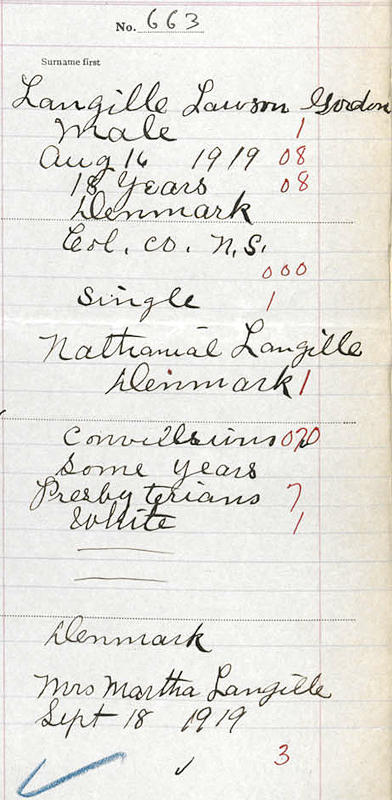 No. 663
Surname first
Langille Lawson Gordon
Male 1
Aug 16 1919 08
18 Years 08
Denmark
Col. Co. N.S.
000
Single 1
Nathanial Langille
Denmark 1
Convillsions 070
Some years
Presbyterians 7
White 1
Denmark
Mrs Martha Langille
Sept 18 1919
3